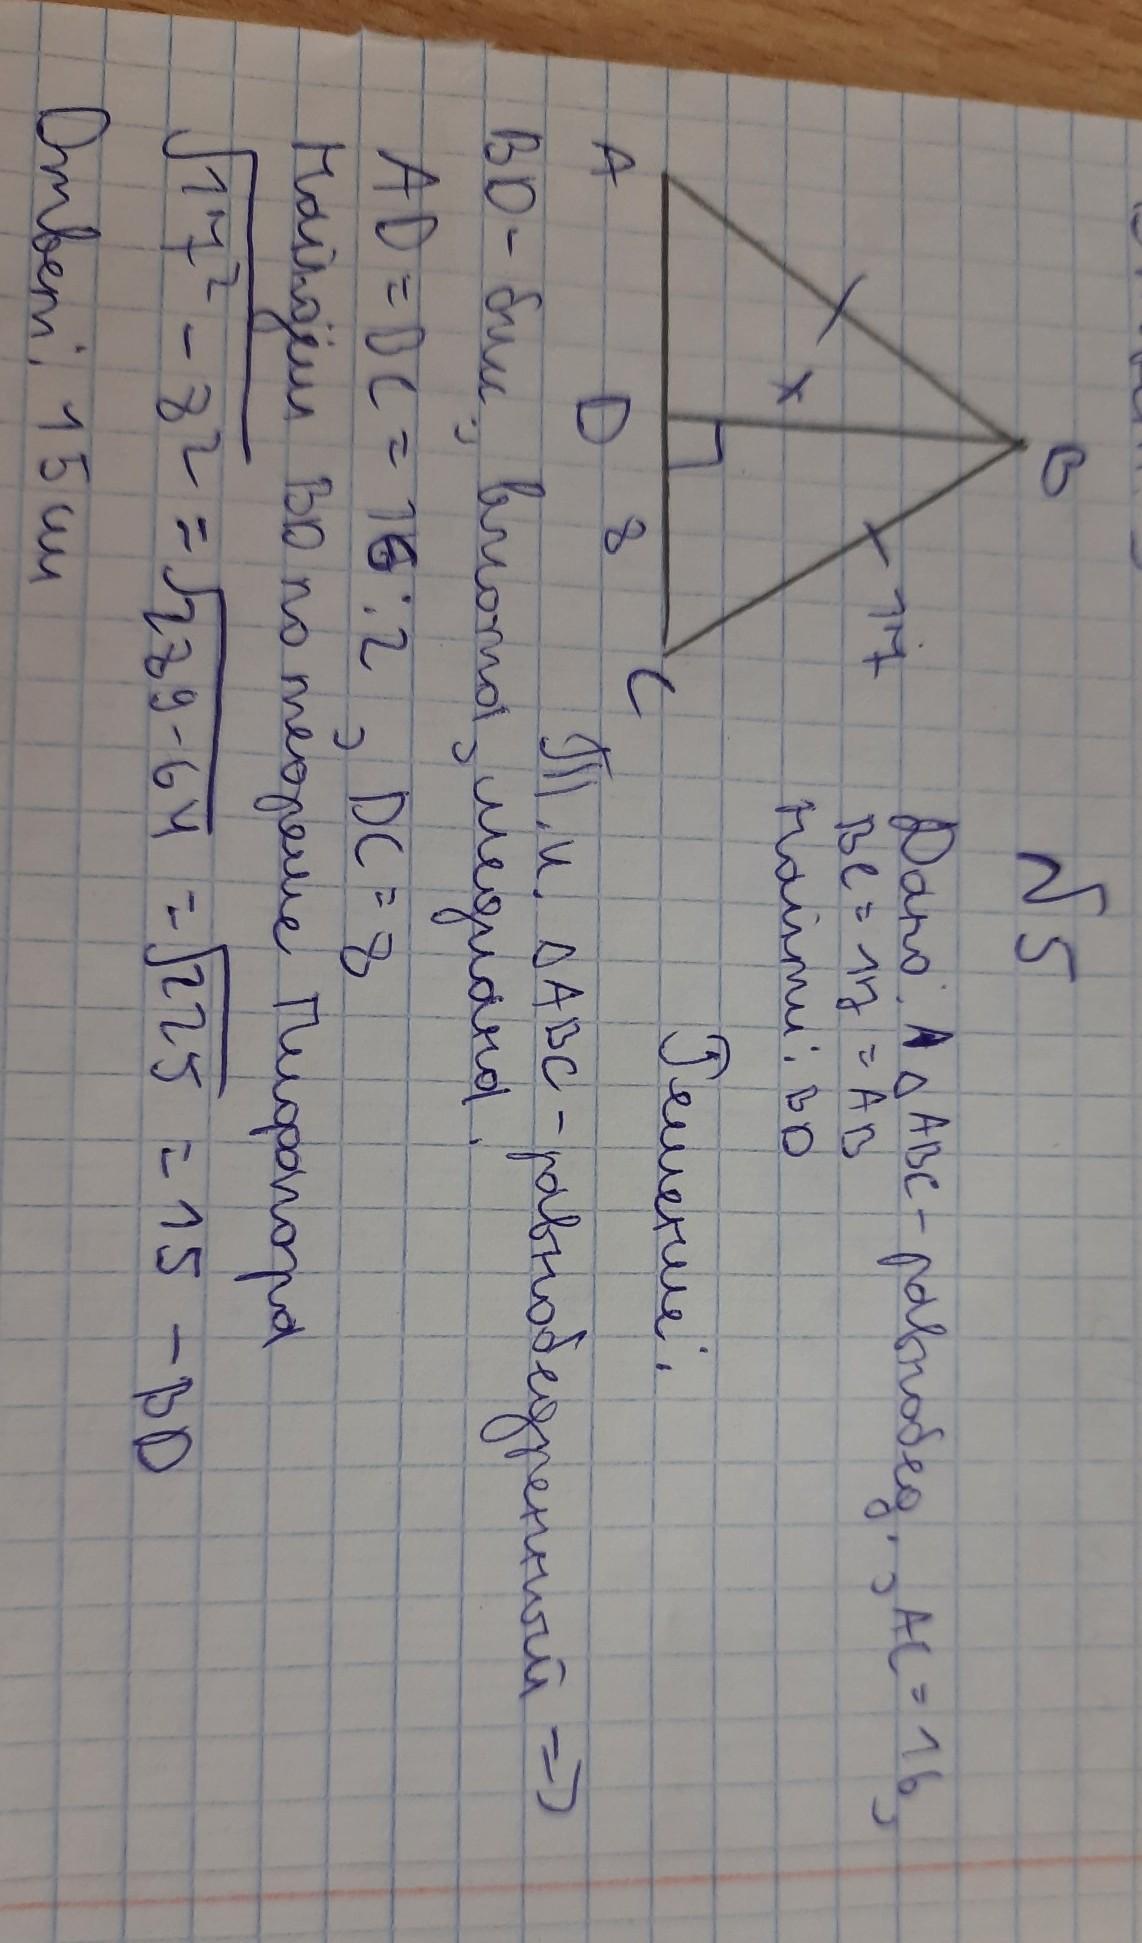 √5
B
17
x
A
D
8
C
Дано: △ABC - равнобед., AC = 16,
BC = 17 = AB
Найти: BD
Решение:
Т.к. △ABC - равнобедренный =>
BD - бис., высота, медиана.
AD = DC = 16 : 2, DC = 8
Найдём BD по теореме Пифагора
√17² - 8² = √289 - 64 = √225 = 15 - BD
Ответ: 15 см